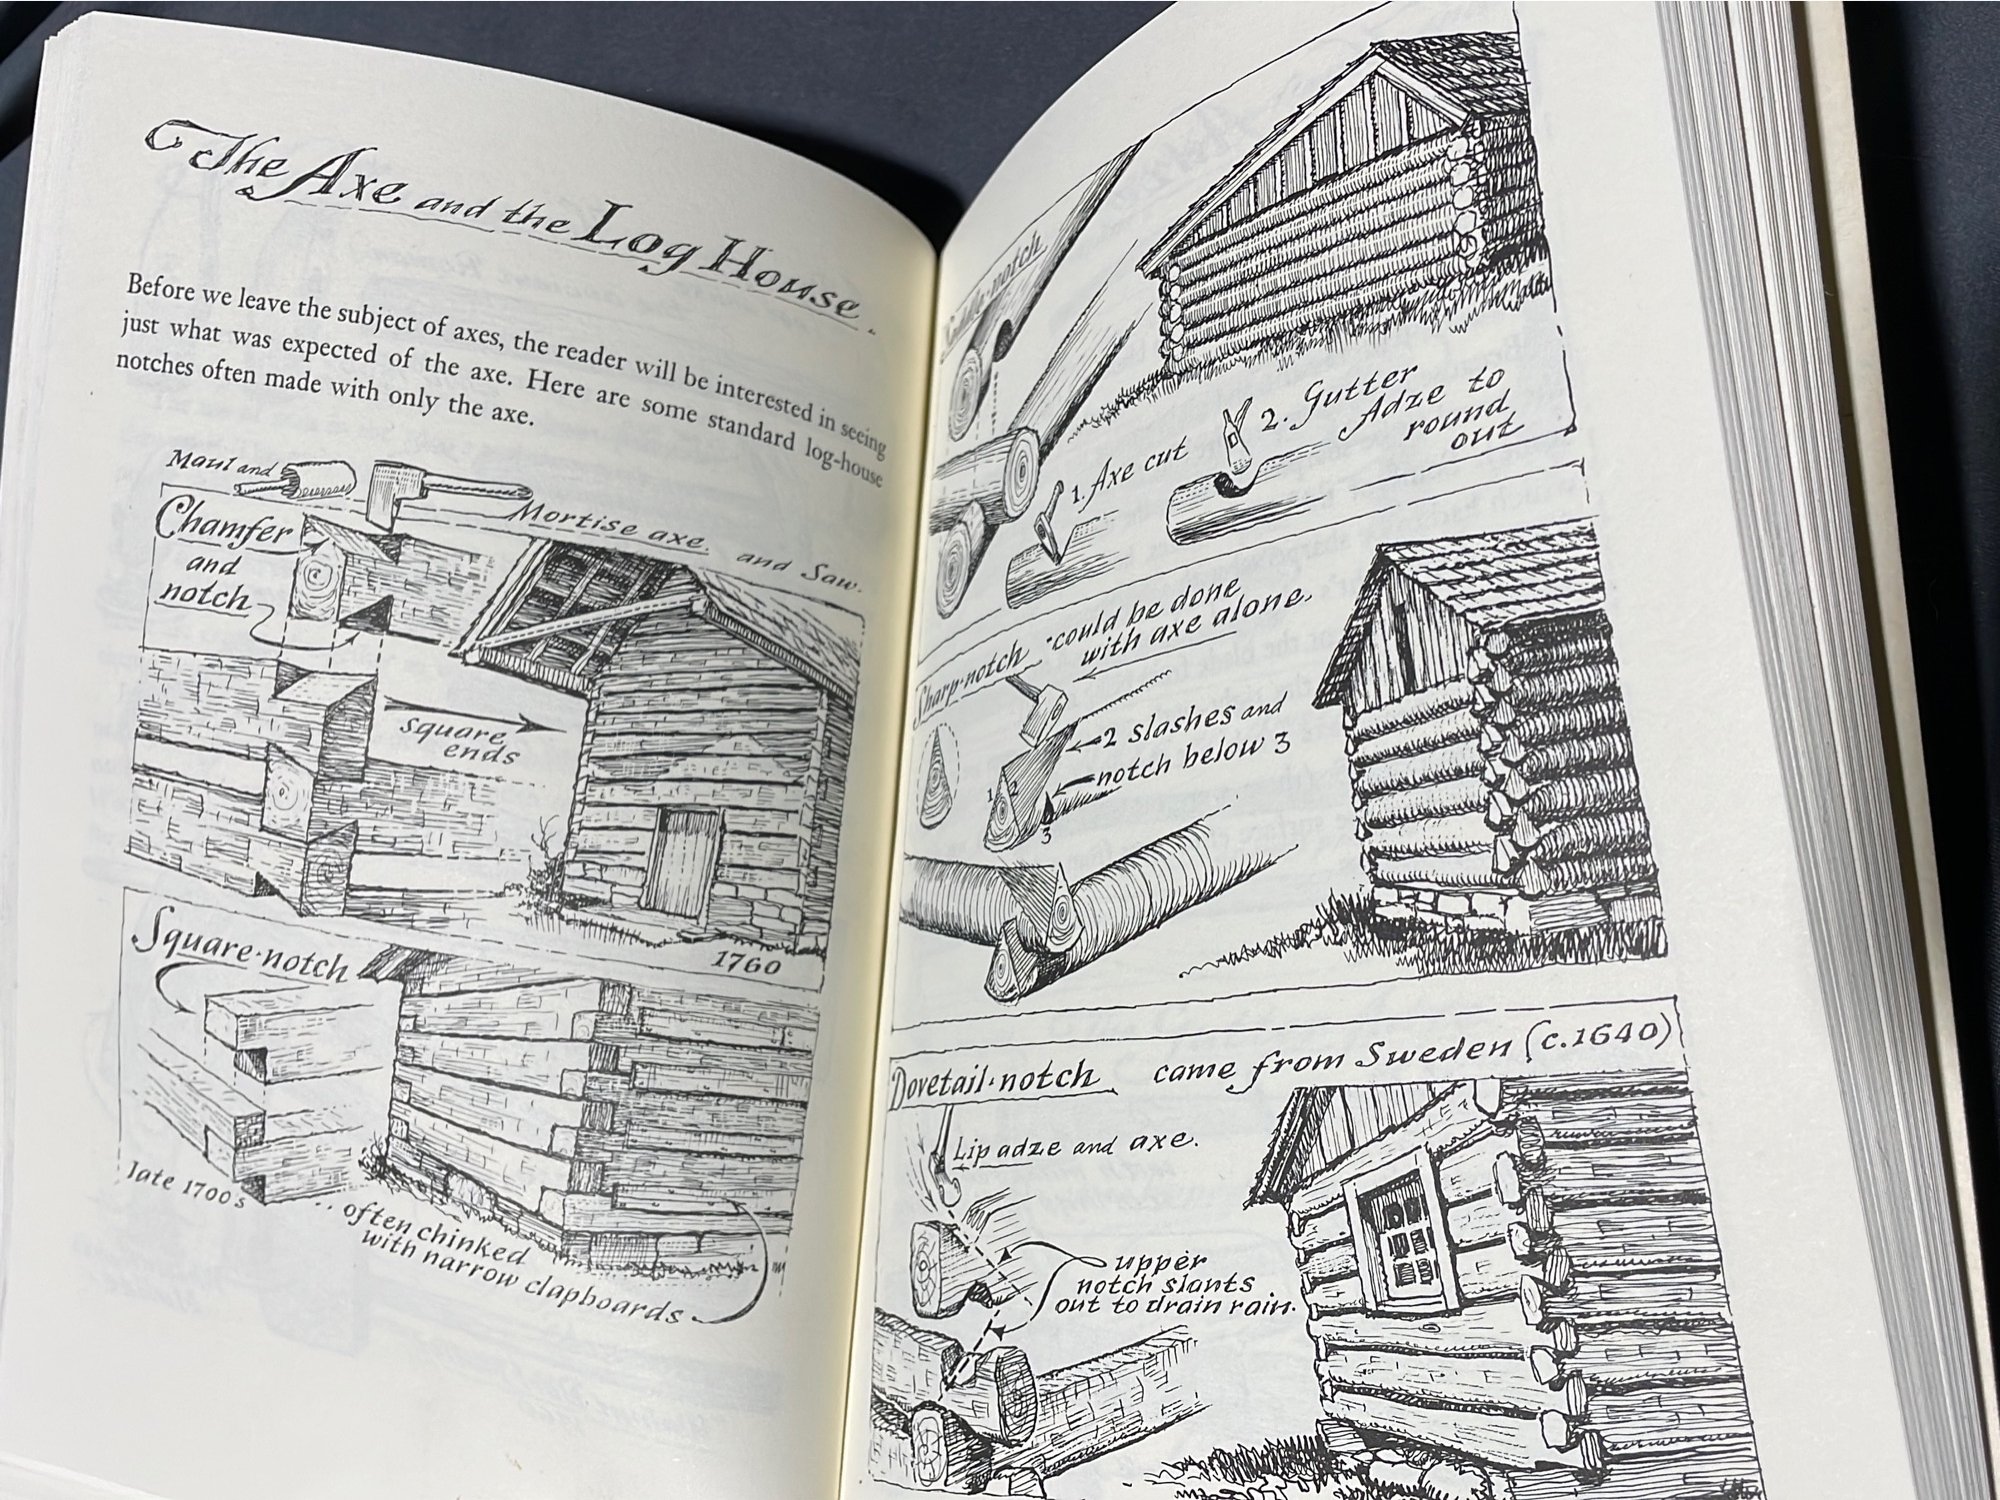 The Axe and the Log House.
Before we leave the subject of axes, the reader will be interested in seeing
just what was expected of the axe. Here are some standard log-house
notches often made with only the axe.
Maul and
Mortise axe. and Saw.
Chamfer
and
notch
square
ends
1760
Square·notch
late 1700s
.. often chinked
with narrow clapboards
Saddle·notch
1. Axe cut
2. Gutter
Adze to
round
out
Sharp·notch
·could be done
with axe alone.
2 slashes and
notch below 3
1 2
3
Dovetail·notch came from Sweden (c.1640)
Lip adze and axe.
upper
notch slants
out to drain rain.